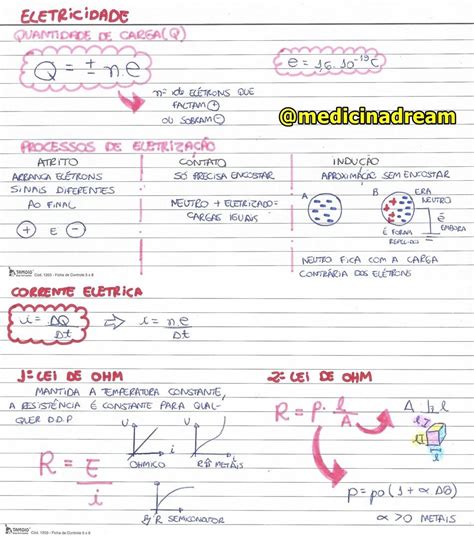 ELETRICIDADE
QUANTIDADE DE CARGA (Q)
Q = ± n.e
e = 1,6.10⁻¹⁹C
n = nº de ELÉTRONS QUE
FALTAM (+)
OU SOBRAM (-)
@medicinadream
PROCESSOS DE ELETRIZAÇÃO
ATRITO
ARRANCA ELÉTRONS
SINAIS DIFERENTES
AO FINAL
+ E -
CONTATO
SÓ PRECISA ENCOSTAR
NEUTRO + ELETRIZADO =
CARGAS IGUAIS
INDUÇÃO
APROXIMAÇÃO SEM ENCOSTAR
A B ERA
NEUTRO
ē
EMBORA
É FORMA
REPELIDO
NEUTRO FICA COM A CARGA
CONTRÁRIA DOS ELÉTRONS
TAMOIO Cód. 1203 - Ficha de Controle 5 x 8
CORRENTE ELÉTRICA
i = ΔQ/Δt ⇒ i = n.e/Δt
1ª LEI DE OHM
MANTIDA A TEMPERATURA CONSTANTE,
A RESISTÊNCIA É CONSTANTE PARA QUAL-
QUER D.D.P
R = E/i
V i
OHMICO
V
METAIS
R SEMICONDUTOR
2ª LEI DE OHM
R = ρ. l/A
ρ = ρ0 (1 + α Δθ)
α > 0 METAIS
TAMOIO Cód. 1203 - Ficha de Controle 5 x 8